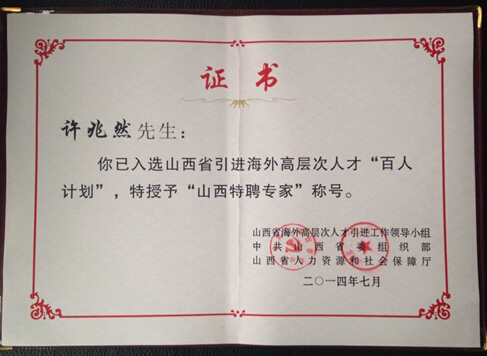 证书
许兆然先生：
你已入选山西省引进海外高层次人才“百人
计划”，特授予“山西特聘专家”称号。
山西省海外高层次人才引进工作领导小组
中共山西省委组织部
山西省人力资源和社会保障厅
二〇一四年七月